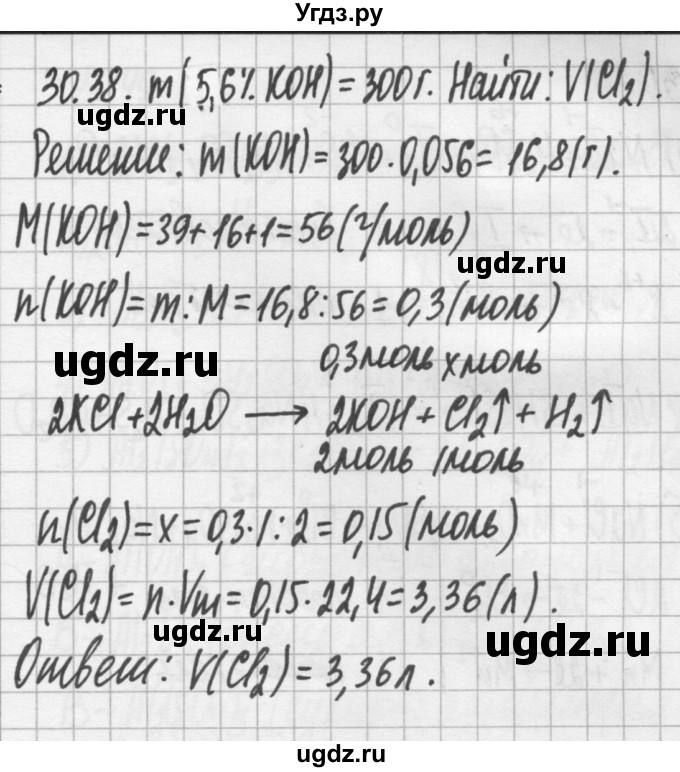 Угдз.ру
30.38. m(5,6% KOH) = 300г. Найти: V(Cl₂).
Решение: m(KOH) = 300·0,056 = 16,8(г).
M(KOH) = 39+16+1 = 56(г/моль)
ugdz.ru
n(KOH) = m:M = 16,8:56 = 0,3(моль)
ugdz.ru
0,3моль xмоль
2KCl + 2H₂O ⟶ 2KOH + Cl₂↑ + H₂↑
2моль 1моль
n(Cl₂) = x = 0,3·1:2 = 0,15(моль)
V(Cl₂) = n·Vm = 0,15·22,4 = 3,36(л).
ugdz.ru
ugdz.ru
Ответ: V(Cl₂) = 3,36л.
ugdz.ru